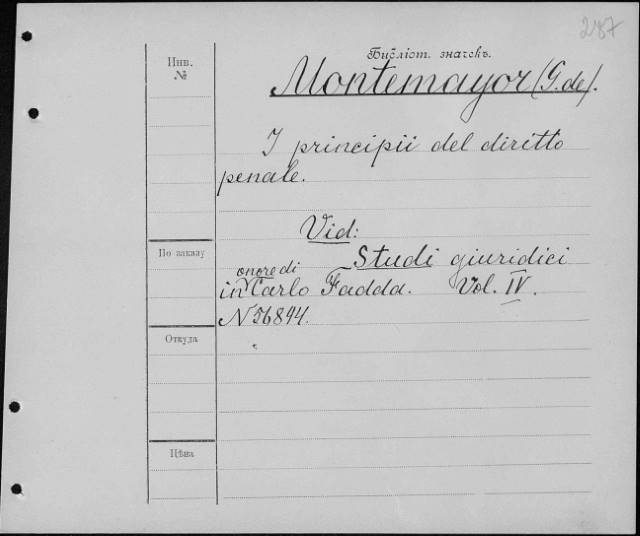 287
Библіот. значекъ.
Инв.
№
Montemayor (G. de).
I principii del diritto
penale.
Vid:
По заказу
Studi giuridici
onore di
in Carlo Fadda. Vol. IV.
N 56844.
Откуда
Цѣна